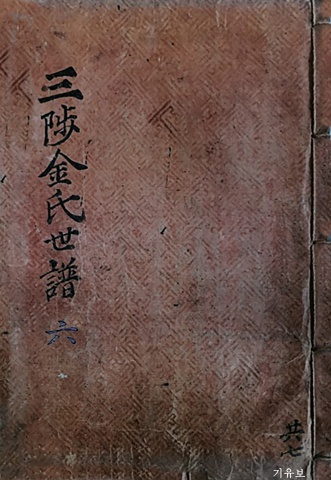 三陟金氏世譜 六
共七
기유보